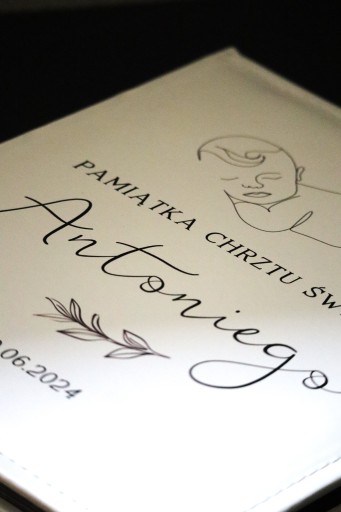 PAMIĄTKA CHRZTU ŚW
Antoniego
.06.2024